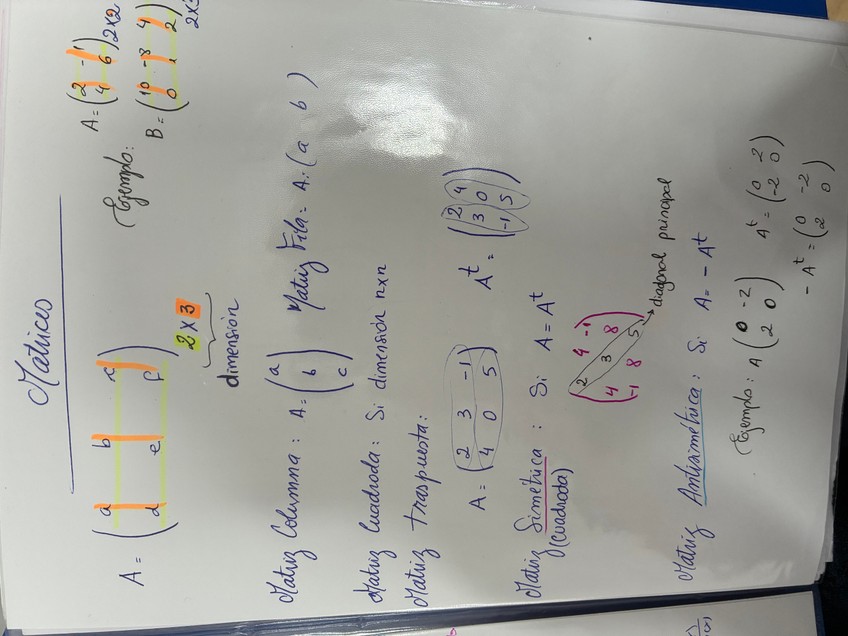 Matrices
A = (a b c
d e f) 2x3
dimensión
Ejemplo: A = (2 -1
4 6) 2x2
B = (10 -8 4
0 1 2) 2x3
Matriz Columna : A = (a
b
c) Matriz Fila = A: (a b)
Matriz Cuadrada : Si dimensión nxn
Matriz traspuesta:
A = (2 3 -1
4 0 5) Aᵗ = (2 4
3 0
-1 5)
Matriz Simétrica : Si A = Aᵗ
(cuadrada)
(2 4 -1
4 3 8
-1 8 5) → diagonal principal
Matriz Antisimétrica : Si A = - Aᵗ
(Ejemplo: A (0 -2
2 0) Aᵗ = (0 2
-2 0)
- Aᵗ = (0 -2
2 0)